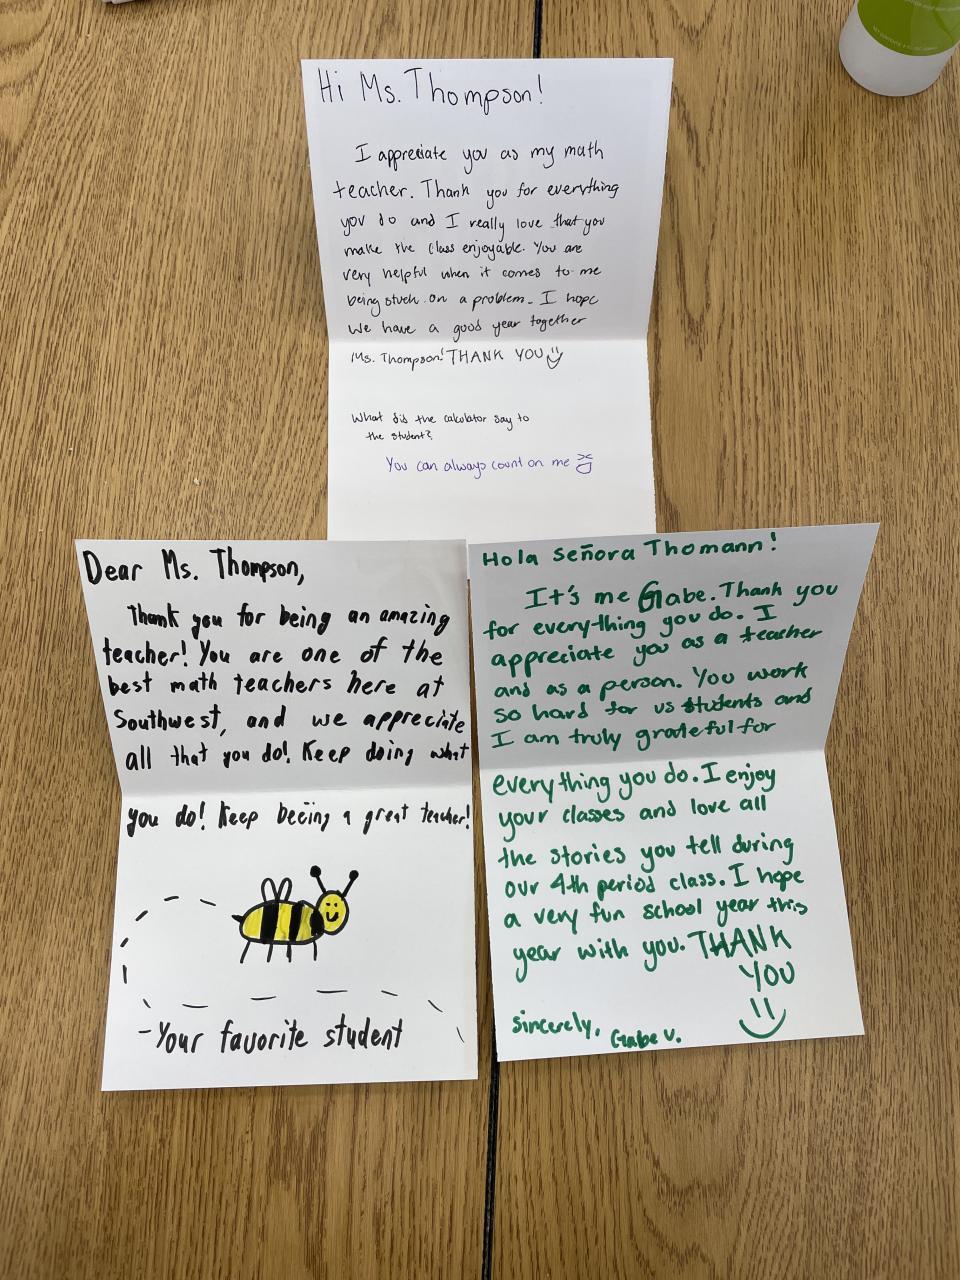 Hi Ms. Thompson!
I appreciate you as my math
teacher. Thank you for everything
you do and I really love that you
make the class enjoyable. You are
very helpful when it comes to me
being stuck on a problem. I hope
we have a good year together
Ms. Thompson! THANK YOU
What did the calculator say to
the student?
You can always count on me XD
Dear Ms. Thompson,
Thank you for being an amazing
teacher! You are one of the
best math teachers here at
Southwest, and we appreciate
all that you do! Keep doing what
you do! Keep beeing a great teacher!
-Your favorite student
Hola Señora Thomann!
It's me Gabe. Thank you
for everything you do. I
appreciate you as a teacher
and as a person. You work
so hard for us students and
I am truly grateful for
everything you do. I enjoy
your classes and love all
the stories you tell during
our 4th period class. I hope
a very fun school year this
year with you. THANK
YOU
sincerely, Gabe V.